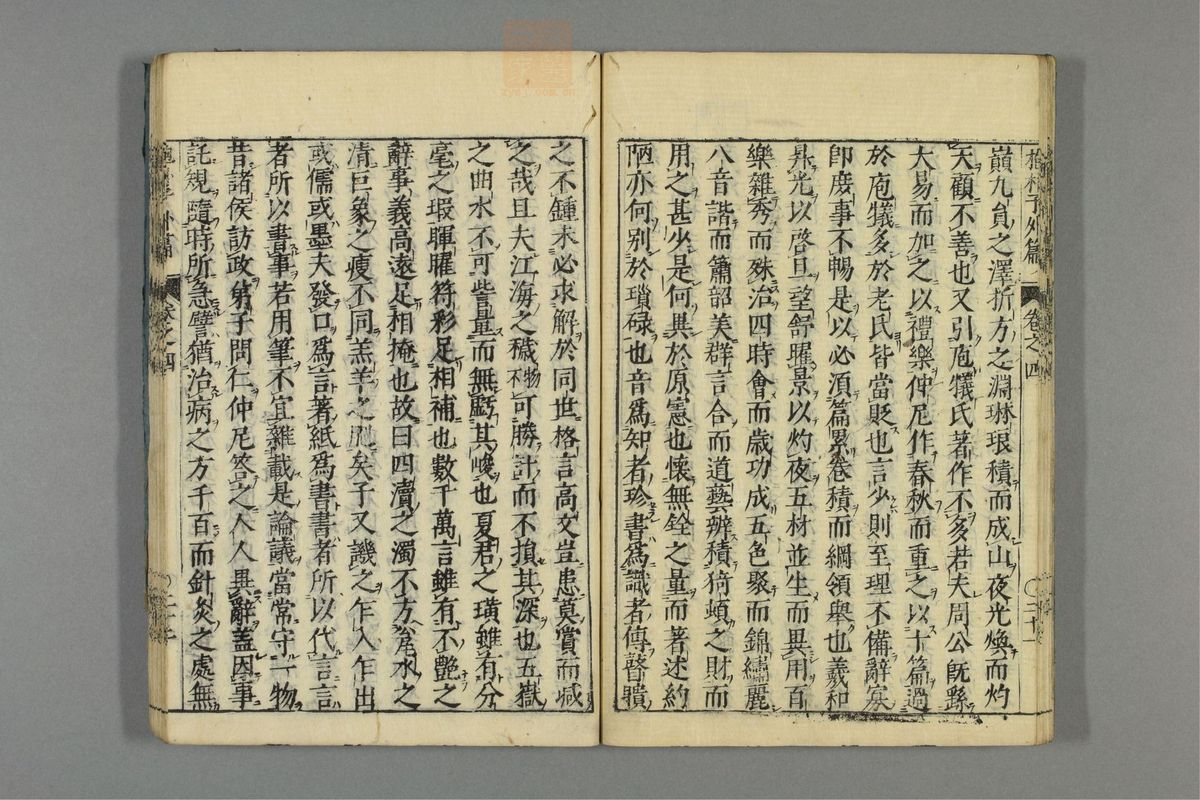 抱朴子外篇 卷之四 〇三十一
巓九負之澤折方之淵琳琅積而成山夜光煥而灼
天顧不善也又引庖犧氏著作不多若夫周公旣繇
大易而加之以禮樂仲尼作春秋而重之以十篇過
於庖犧多於老氏皆當貶也言少則至理不備辭寡
卽庶事不暢是以必須篇累卷積而綱領舉也羲和
昇光以啓旦望舒曜景以灼夜五材並生而異用百
樂雜秀而殊治四時會而歲功成五色聚而錦繡麗
八音諧而簫韶美群言合而道藝辨積猗頓之財而
用之甚少是何異於原憲也懷無銓之量而著述約
陋亦何別於瑣碌也音爲知者珍書爲識者傳瞽瞶
之不鍾未必求解於同世格言高文豈患莫賞而減
之哉且夫江海之穢物不可勝計而不損其深也五嶽
之曲木不可訾量而無虧其峻也夏君之璜雖有分
毫之瑕暉曜符彩足相補也數千萬言雖有不艷之
辭事義高遠足相掩也故曰四瀆之濁不方瓮水之
清巨象之瘦不同羔羊之肥矣子又譏之乍入乍出
或儒或墨夫發口爲言著紙爲書書者所以代言言
者所以書事若用筆不宜雜載是論議當常守一物
昔諸侯訪政弟子問仁仲尼答之人人異辭蓋因事
託規隨時所急譬猶治病之方千百而針灸之處無
外篇 卷之四